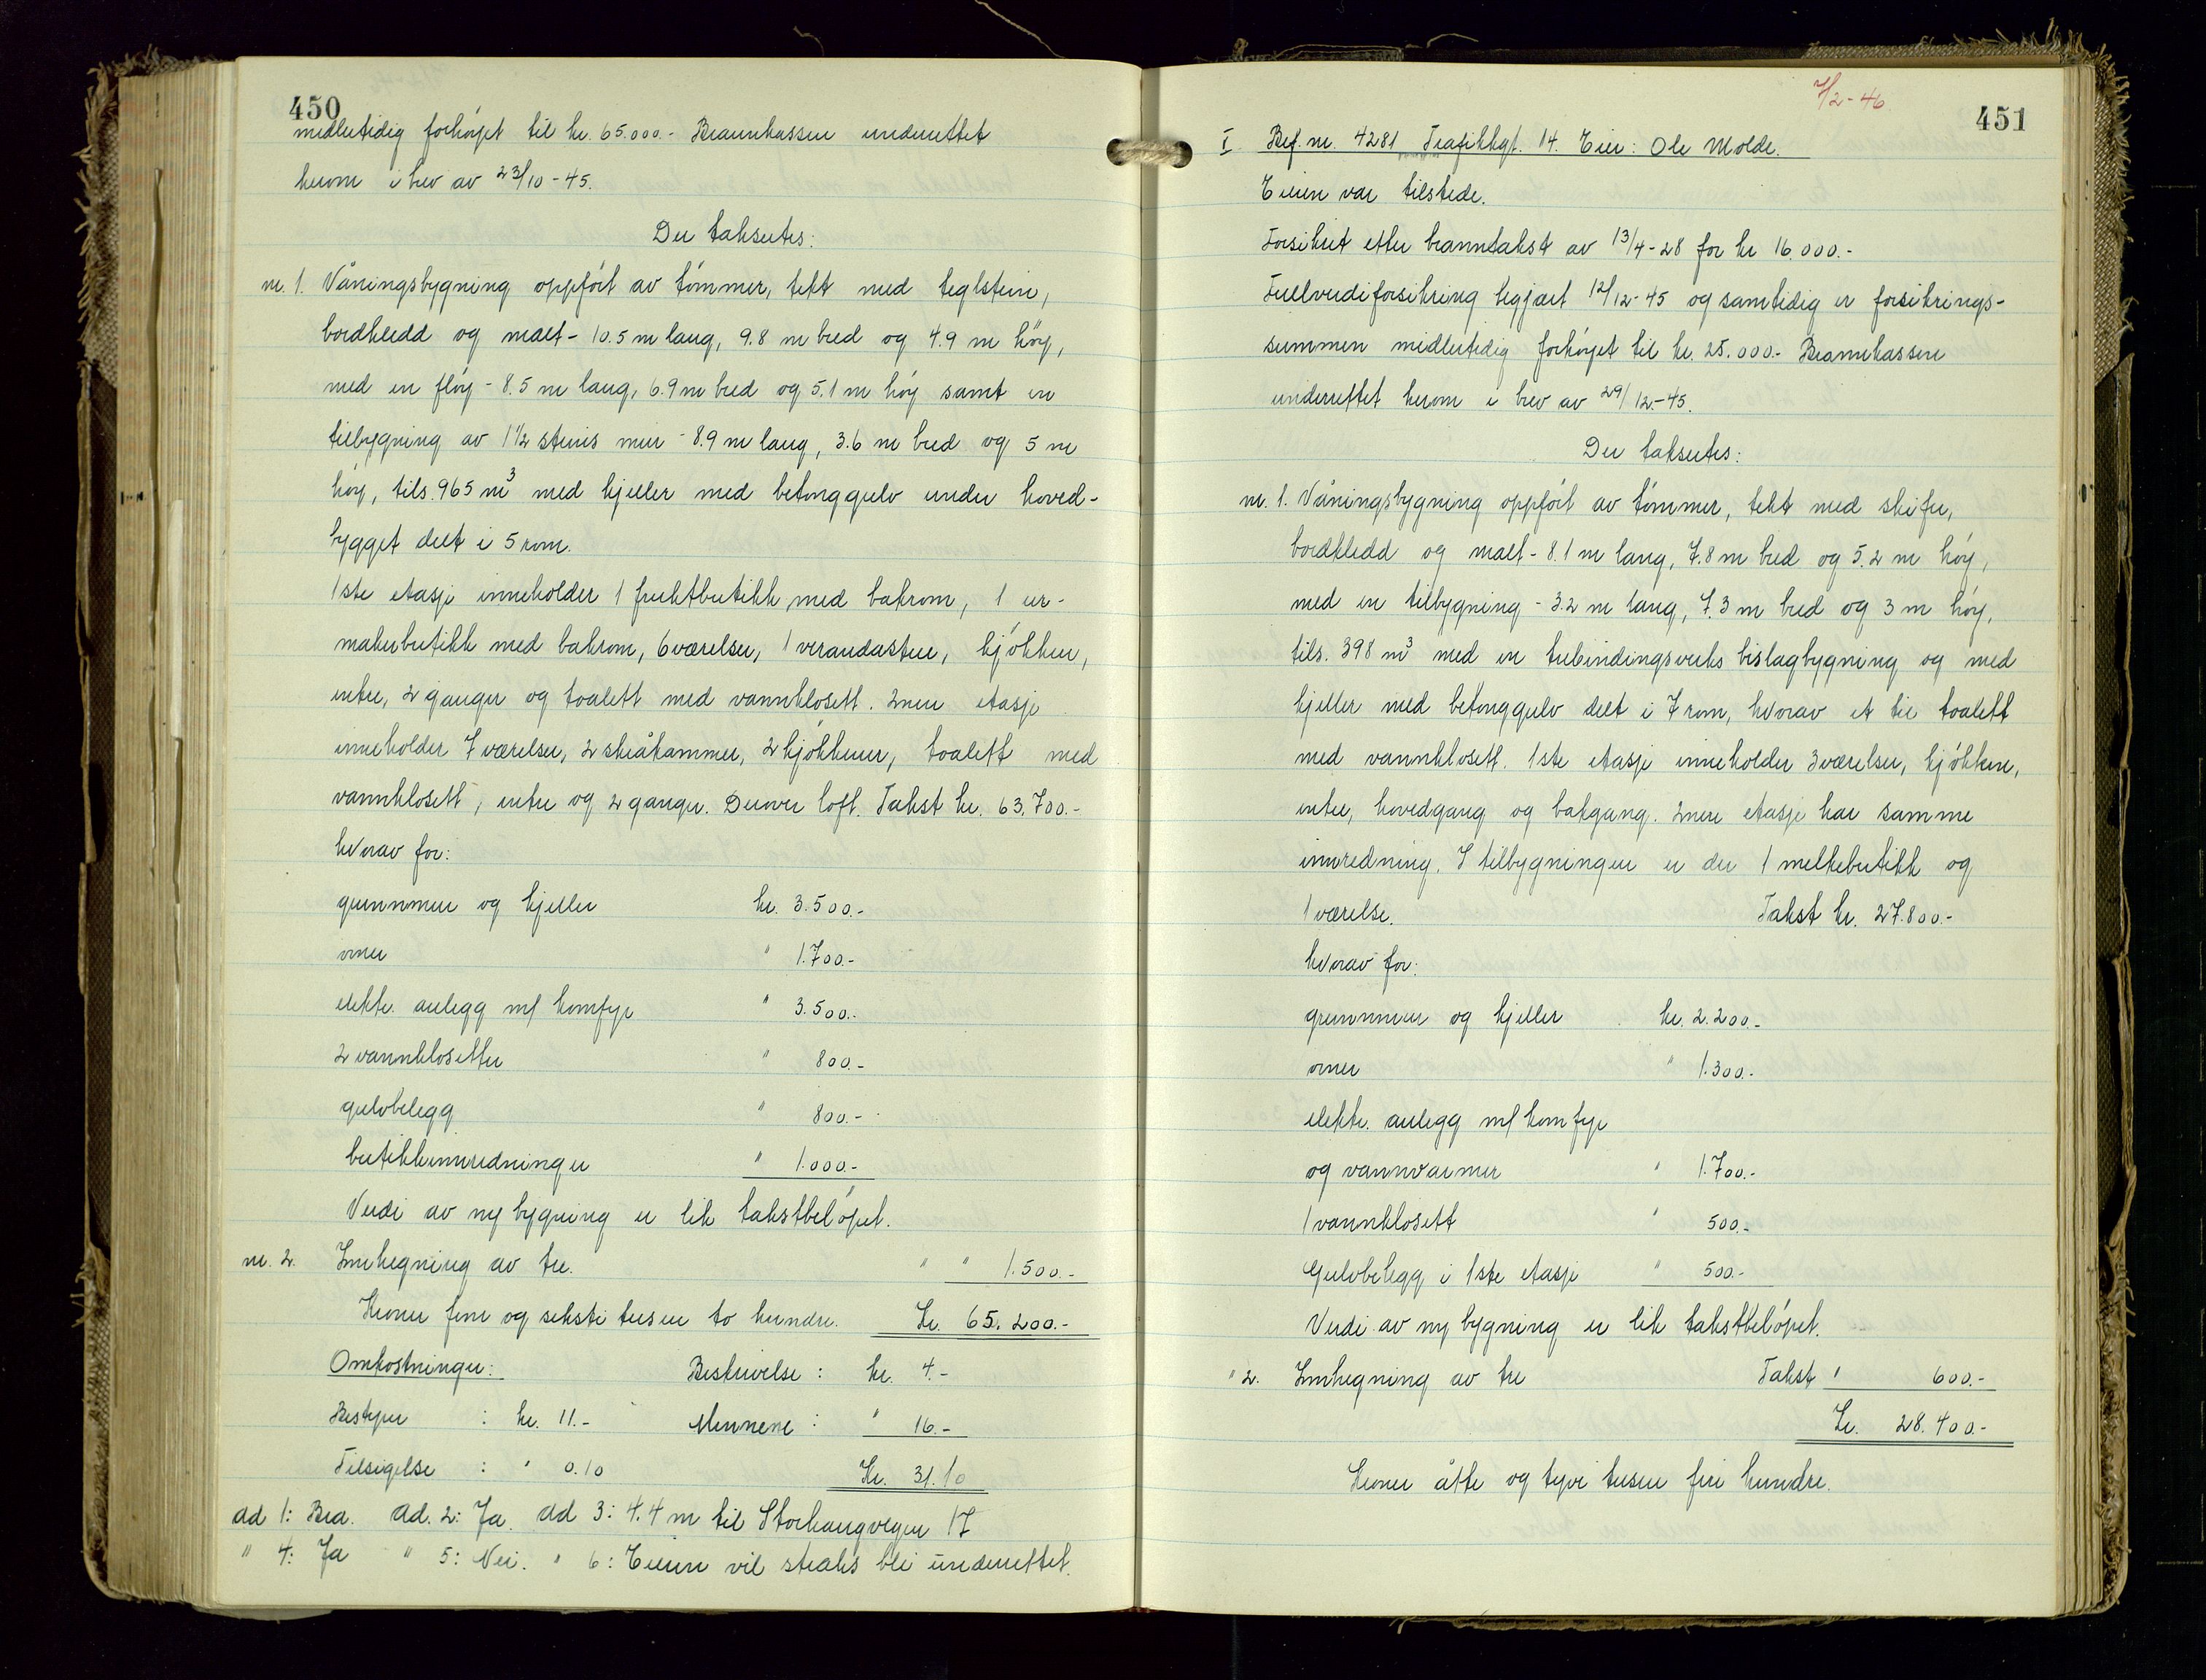 450
midlertidig forhöyet til kr. 65.000.- Brannkassen underrettet
herom i brev av 23/10-45.
Der takseres:
nr. 1. Våningsbygning oppfört av tömmer, tekt med teglstein,
bordkledd og malt - 10.5 m lang, 9.8 m bred og 4.9 m höy,
med en flöy - 8.5 m lang, 6.9 m bred og 5.1 m höy samt en
tilbygning av 1 1/2 steins mur - 8.9 m lang, 3.6 m bred og 5 m
höy, tils. 965 m³ med kjeller med betonggulv under hoved-
bygget delt i 5 rom.
1ste etasje inneholder 1 fruktbutikk med bakrom, 1 ur-
makerbutikk med bakrom, 6 værelser, 1 verandastue, kjökken,
entre, 2 ganger og toalett med vannklosett. 2nen etasje
inneholder 7 værelser, 2 skråkammer, 2 kjökkener, toalett med
vannklosett, entre og 2 ganger. Derover loft. Takst kr. 63.700.-
hvorav for:
grunnmur og kjeller kr. 3.500.-
ovner " 1.700.-
elektr. anlegg m/ komfyr " 3.500.-
2 vannklosetter " 800.-
gulvbelegg " 800.-
butikkinnredninger " 1.000.-
Verdi av ny bygning er lik takstbelöpet.
nr. 2. Innhegning av tre. " " 1.500.-
Kroner fem og seksti tusen to hundre. Kr. 65.200.-
Omkostninger: Beskrivelse : kr. 4.-
Bestyrer : kr. 11.- Mennene : " 16.-
Tilsigelse : " 0.10 Kr. 31.10
ad 1: Bra. ad. 2: Ja. ad 3: 4.4 m til Storhaugvegen 17
" 4: Ja " 5: Nei. " 6: Eieren vil straks bli underrettet.
7/2-46
451
I Bef. nr. 4281 Trafikkgt. 14. Eier: Ole Molde.
Eieren var tilstede.
Forsikret etter branntakst av 13/4-28 for kr 16.000.-
Fullverdiforsikring begjært 12/12-45 og samtidig er forsikrings-
summen midlertidig forhöyet til kr. 25.000.- Brannkassen
underrettet herom i brev av 29/12-45.
Der takseres:
nr. 1. Våningsbygning oppfört av tömmer, tekt med skifer,
bordkledd og malt - 8.1 m lang, 7.8 m bred og 5.2 m höy,
med en tilbygning - 3.2 m lang, 7.3 m bred og 3 m höy,
tils. 398 m³ med en trebindingsverks bislagbygning og med
kjeller med betonggulv delt i 7 rom, hvorav et til toalett
med vannklosett. 1ste etasje inneholder 3 værelser, kjökken,
entre, hovedgang og bakgang. 2nen etasje har samme
innredning. I tilbygningen er der 1 melkebutikk og
1 værelse. Takst kr. 27.800.-
hvorav for:
grunnmur og kjeller kr. 2.200.-
ovner " 1.300.-
elektr. anlegg m/ komfyr
og vannvarmer " 1.700.-
1 vannklosett " 500.-
Gulvbelegg i 1ste etasje " 500.-
Verdi av ny bygning er lik takstbelöpet.
" 2. Innhegning av tre Takst " 600.-
Kr. 28.400.-
Kroner åtte og tyve tusen fire hundre.